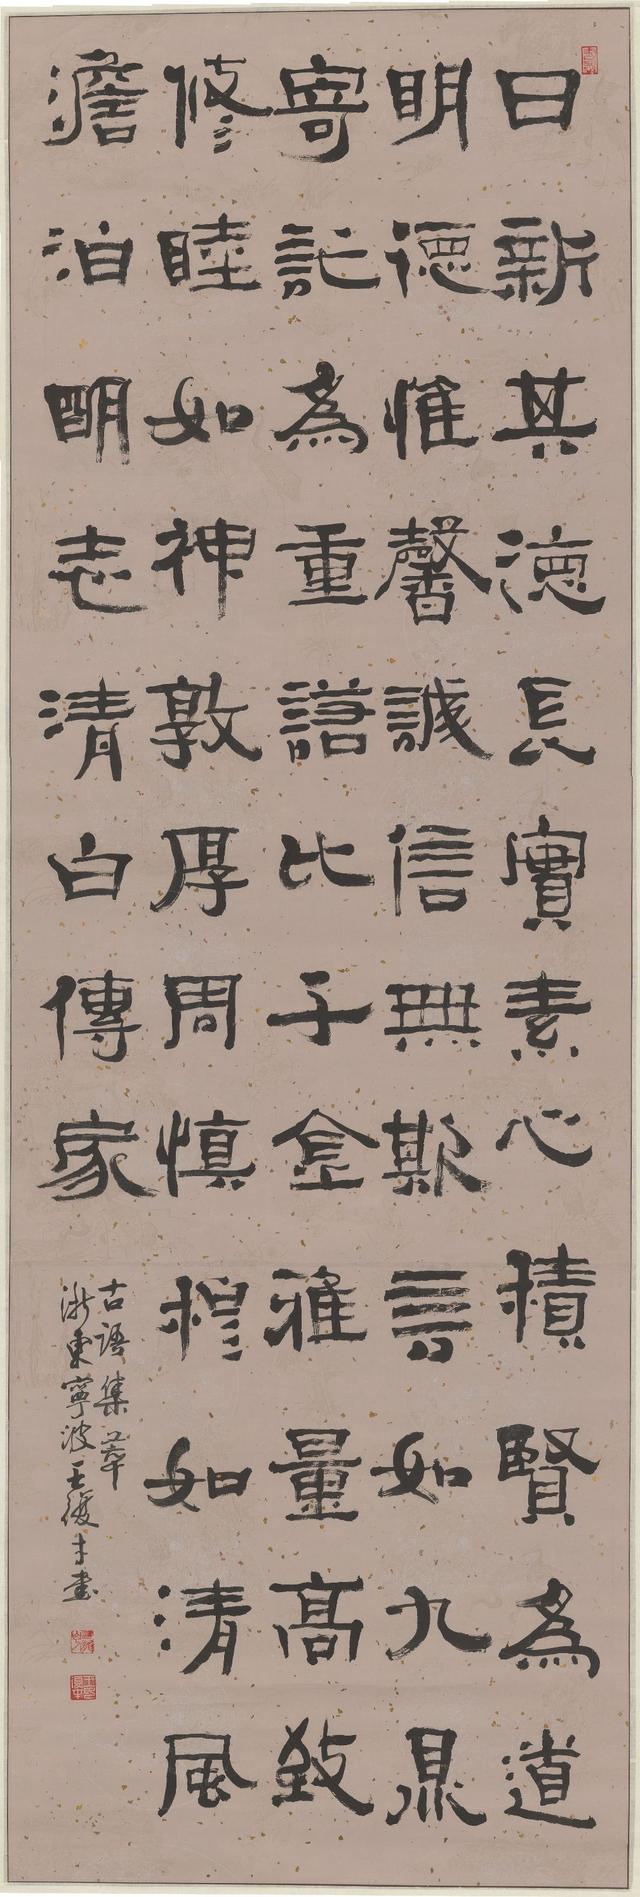 日新其德長實素心積賢為道
明德惟馨誠信無欺言如九鼎
寄託為重諾比千金雅量高致
修睦如神敦厚周慎穆如清風
澹泊明志清白傳家
古語集萃
浙東寧波王復才書